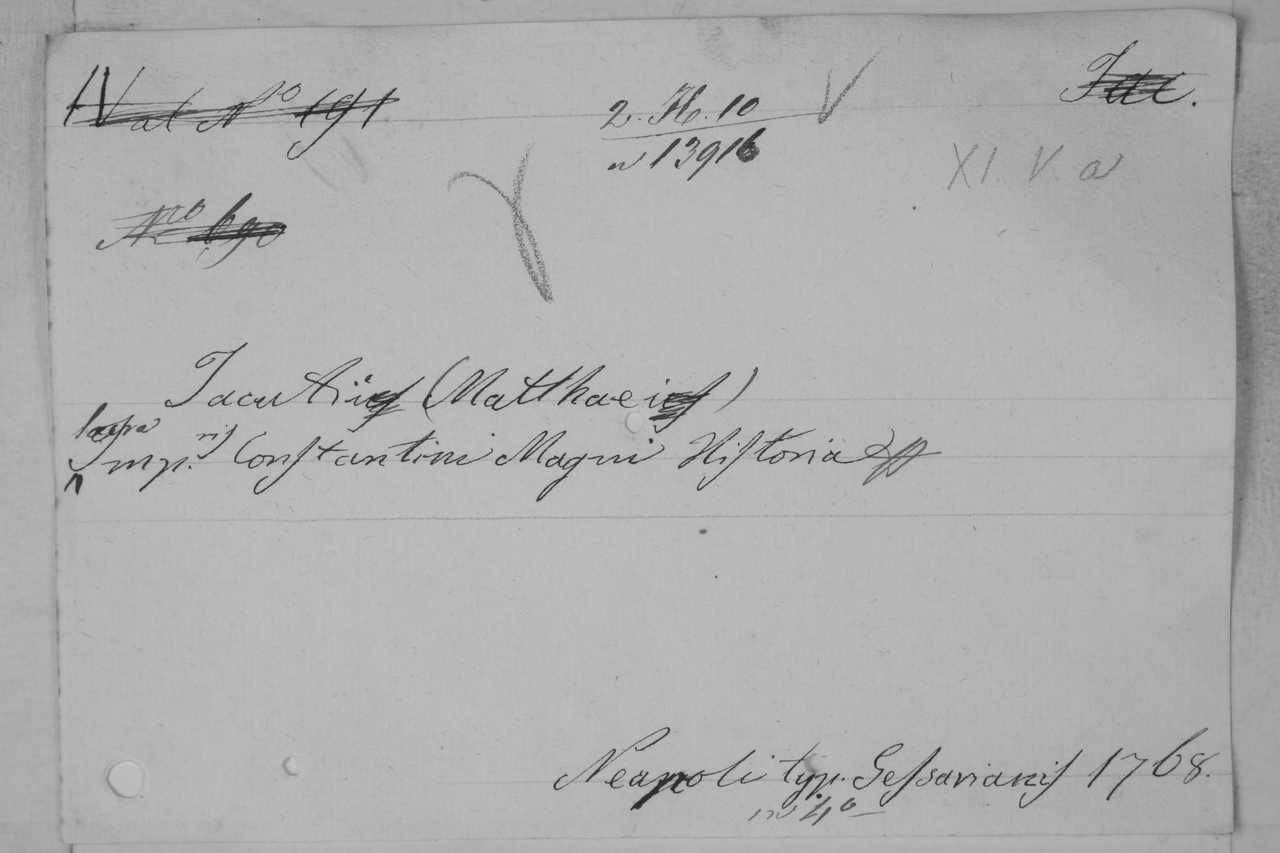 IV at No 191
2. H. 10
Jac.
n 13916
XI V a
Nro 690
Jacutii (Matthaei)
Imp.ris Constantini Magni Historia
Neapoli typ. Gessarianis 1768.
in 4o